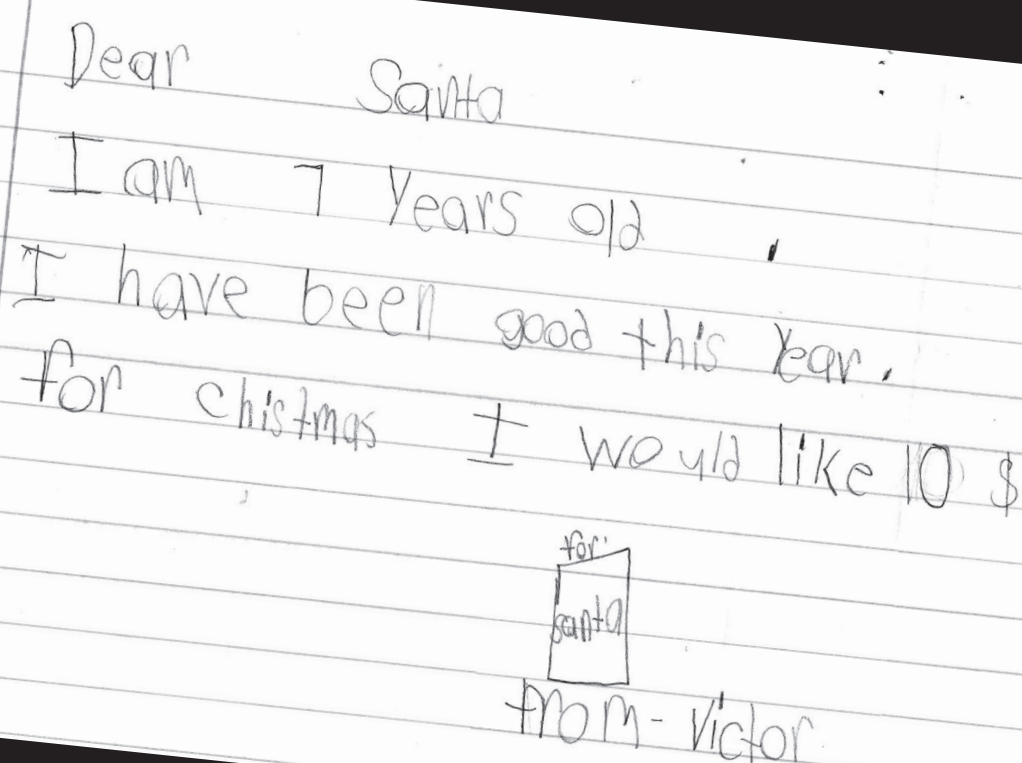 Dear Santa
I am 7 Years old
I have been good this Year.
for chistmas I would like 10 $
for
santa
from - Victor